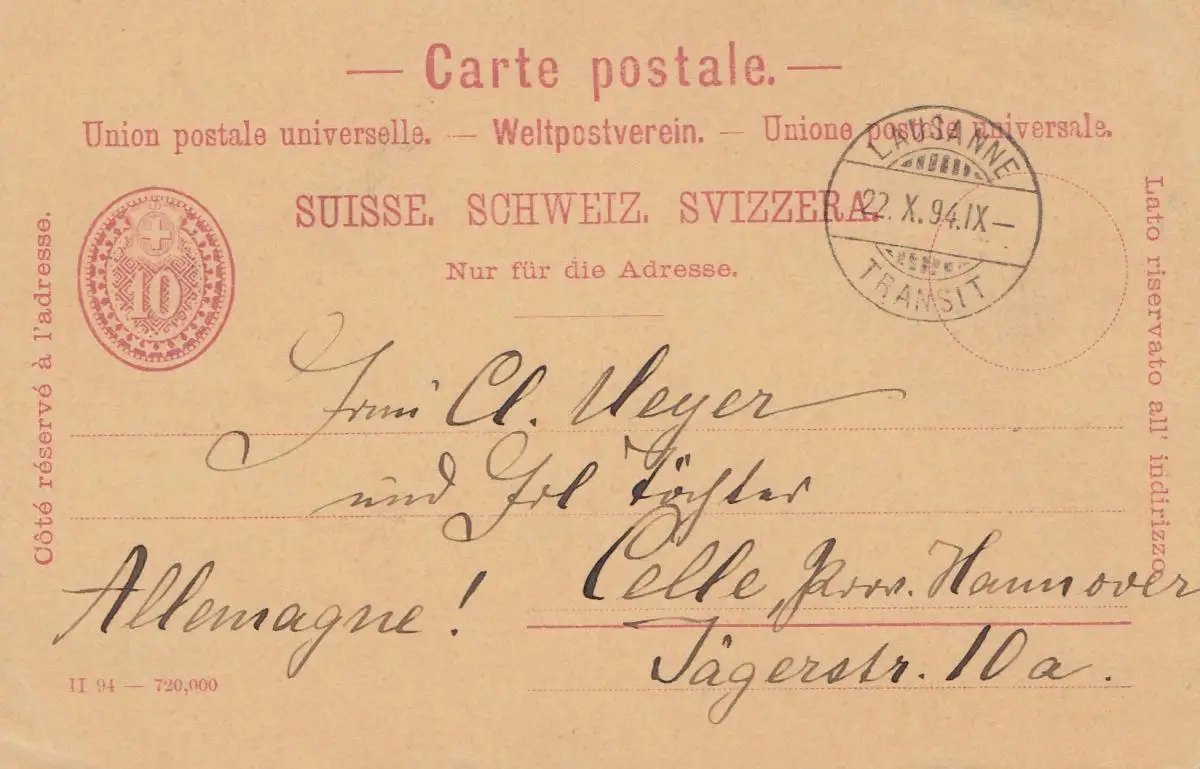 — Carte postale. —
Union postale universelle. — Weltpostverein. — Unione postale universale.
SUISSE. SCHWEIZ. SVIZZERA.
Nur für die Adresse.
Côté réservé à l'adresse.
Lato riservato all' indirizzo
10
LAUSANNE
22. X. 94. IX —
TRANSIT
Frau Cl. Meyer
und Frl Töchter
Celle, Prov. Hannover
Allemagne!
Jägerstr. 10 a.
II 94 — 720,000